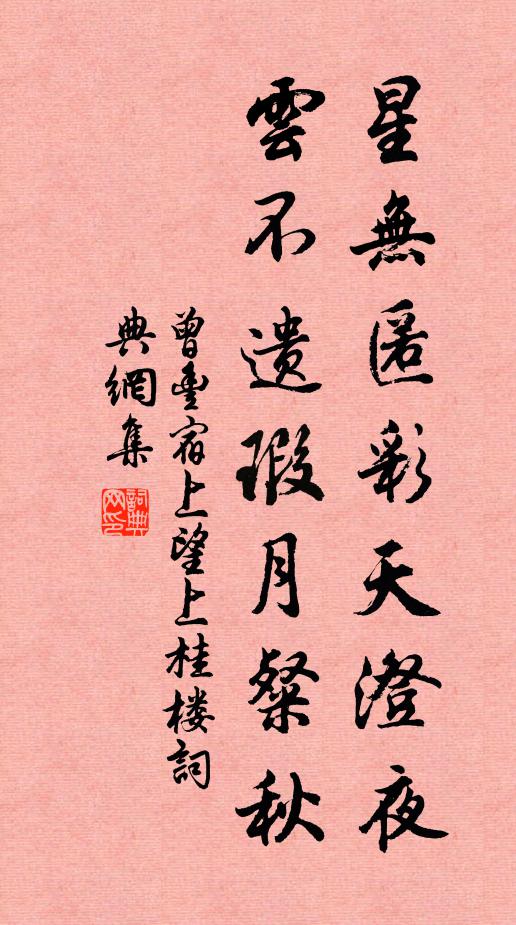 星無匿彩天澄夜
雲不遺瑕月粲秋
曾豊宿上望上桂楼詞
典網集
詞典
网印